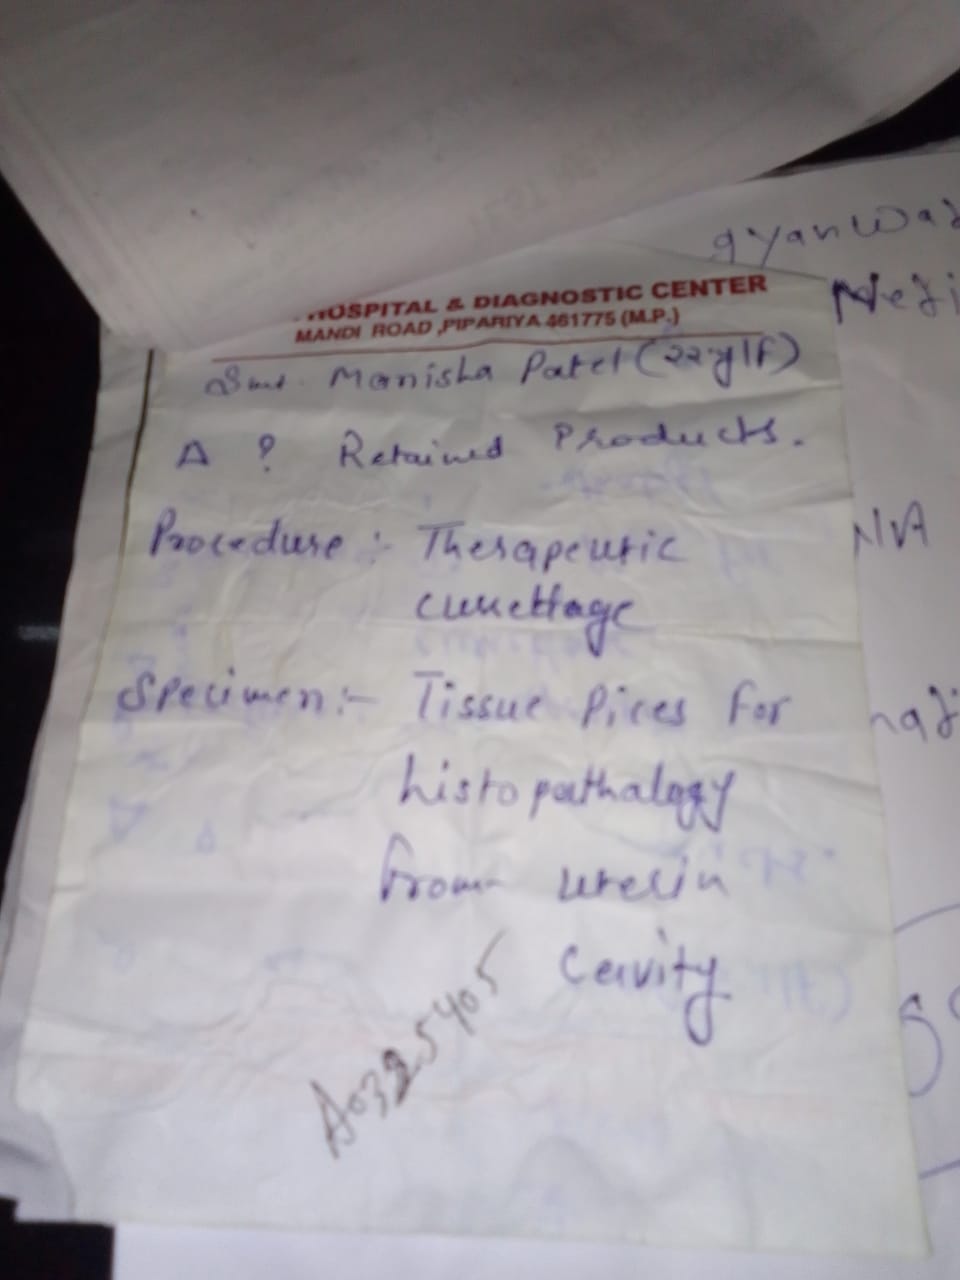 HOSPITAL & DIAGNOSTIC CENTER
MANDI ROAD ,PIPARIYA 461775 (M.P.)
Smt. Manisha Patel (22y/F)
Δ ? Retained Products.
Procedure :- Therapeutic
curettage
Specimen:- Tissue Pices for
histopathalogy
from uterin
Cavity
A0325405
gyanwa
NA